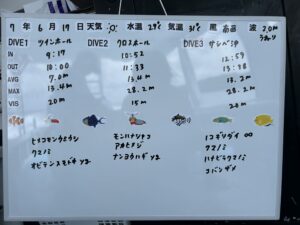 7年 6月 19日 天気 水温 29℃ 気温 31 風 南西 波 2.0m
うねり
DIVE1 ツインホール DIVE2 クロスホール DIVE3 サシバ沖
IN 9:17 10:52 12:59
OUT 10:00 11:33 13:38
AVG 7.0m 13.4m 13.2m
MAX 13.4m 28.2m 28.2m
VIS 20m 15m 20m
ヒメコモンウミウシ モンハナシャコ ノコギリダイ ∞
クマノミ アカヒメジ クマノミ
オビテンスモドキ yg ナンヨウハギ yg ハナビラクマノミ
コバンザメ